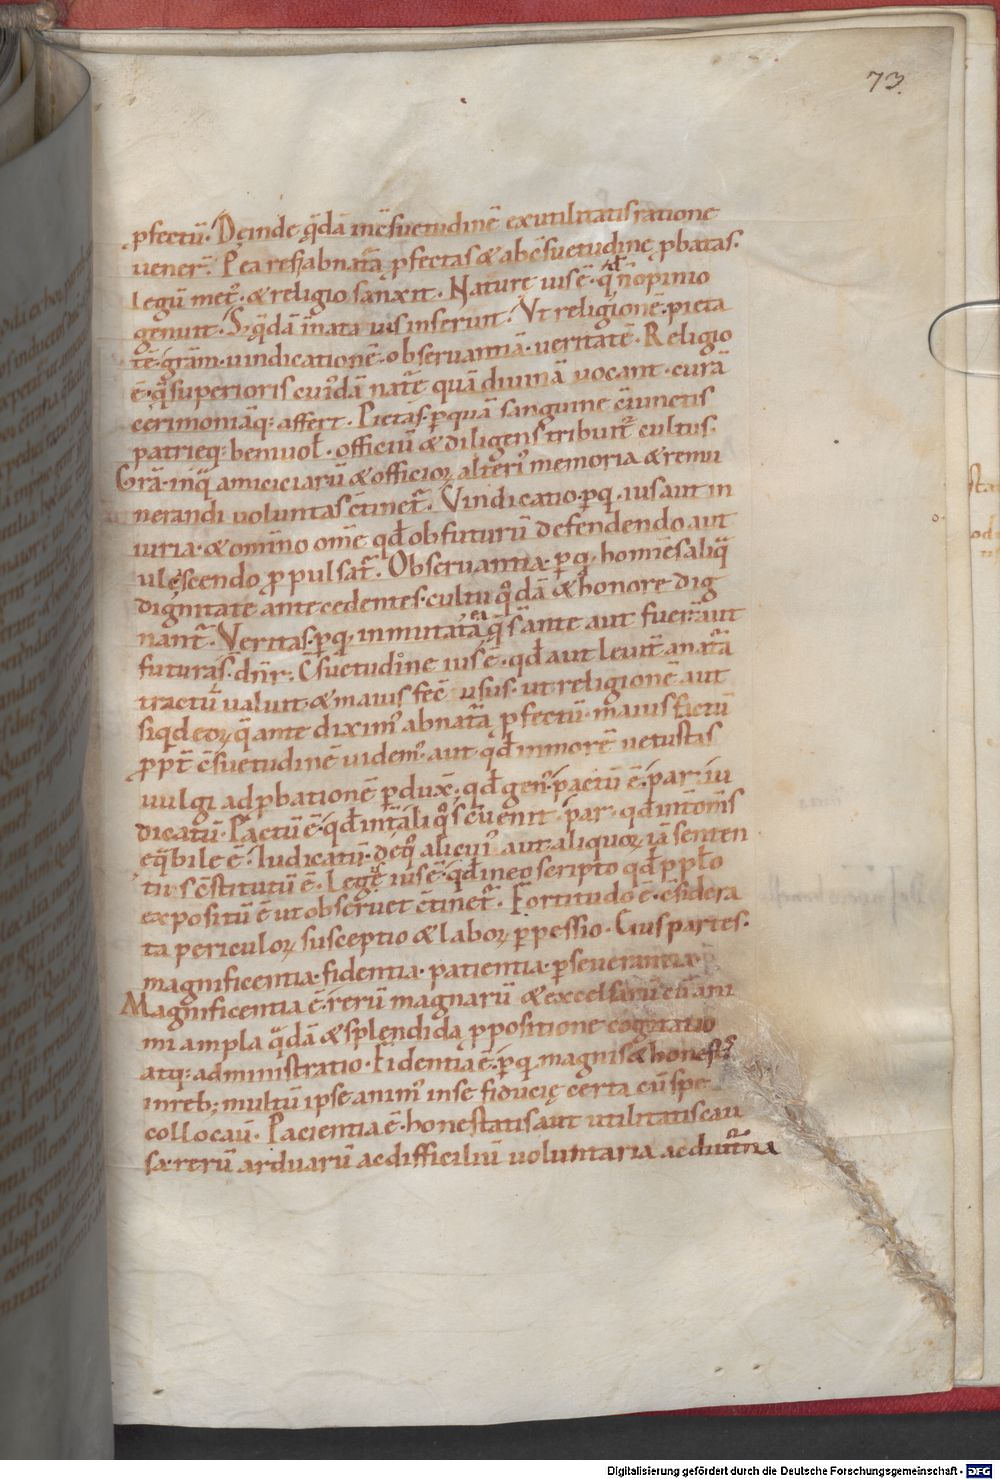 73.
pfectū. Deinde q̄dā incs̄uetudinē exutilitatis ratione
vener̄. P ea res & abnatā pfectas & abcs̄uetudine pbatas.
legū met᷒. & religio sanxit. Naturę ius ē. qd̄ n̄ opinio
genuit. S; q̄dā īnata uis inseruit. Vt religionē. pieta
tē. grām. uindicationē. observantiā. veritatē. Religio
ē. q̄ superioris cui᷒dā natę̄ quā divinā vocant. curā
cerimoniāq; affert. Pietas. p quā sanguine c̄iunctis
patrięq; benivol̄. officiū & diligens tribuit᷑ cultus.
Grā. inq̄ amiciciarū & officioꝝ alteri᷒ memoria & remu
nerandi voluntas c̄tinet᷑. Vindicatio. p q̄. uis aut in
iuria. & omnino om̄e qd̄ obfuturū defendendo aut
ulcęscendo ppulsat᷑. Observantia. p q̄. homīes aliq̄
dignitate antecedentes. cultu q̊dā & honore dig
nant᷑. Veritas. p q̄. inmutata ea q̄ s̄ ante aut fuer̄ aut
futura s̄. dn̄r. Cs̄uetudine ius ē. qd̄ aut leuit᷑ a natā
tractū ualuit. & maius fec̄ usus. ut religionē aut
siqd eoꝝ q̄ ante dixim᷒ ab natā pfectū. maius fictū
ppt̄ cs̄uetudinē videm᷒. aut qd̄ in morē vetustas
vulgi ad pbationē pdux̄. qd̄ gen᷒. pactū ē. par. iu
dicatū. Pactū ē. qd̄ int̄ aliq̊s cuenit. par. qd̄ int̄ om̄s
eq̄bile ē. Iudicatū. de q̊ alicui᷒ aut aliquoꝝ iā senten
tiis c̄stitutū ē. Legę ius ē. qd̄ in eo scripto qd̄ pplo
expositū ē ut observet c̄tinet᷑. Fortitudo ē. c̄sidera
ta periculoꝝ susceptio & laboꝝ ppessio. Eius partes.
magnificentia. fidentia. patientia. pseverantia.
Magnificentia ē. rerū magnarū & excelsarū cū ani
mi ampla q̄dā & splendida ppositione cogitatio
atq; administratio. Fidentia ē. p q̄ magnis & honest᷒
in reb; multū ipse anim᷒ in se fiducię certa cū spe
collocau᷑. Pacientia ē. honestatis aut utilitatis cau
sa. rerū arduarū ac difficiliū voluntaria ac diut᷑na
Digitalisierung gefördert durch die Deutsche Forschungsgemeinschaft - DFG